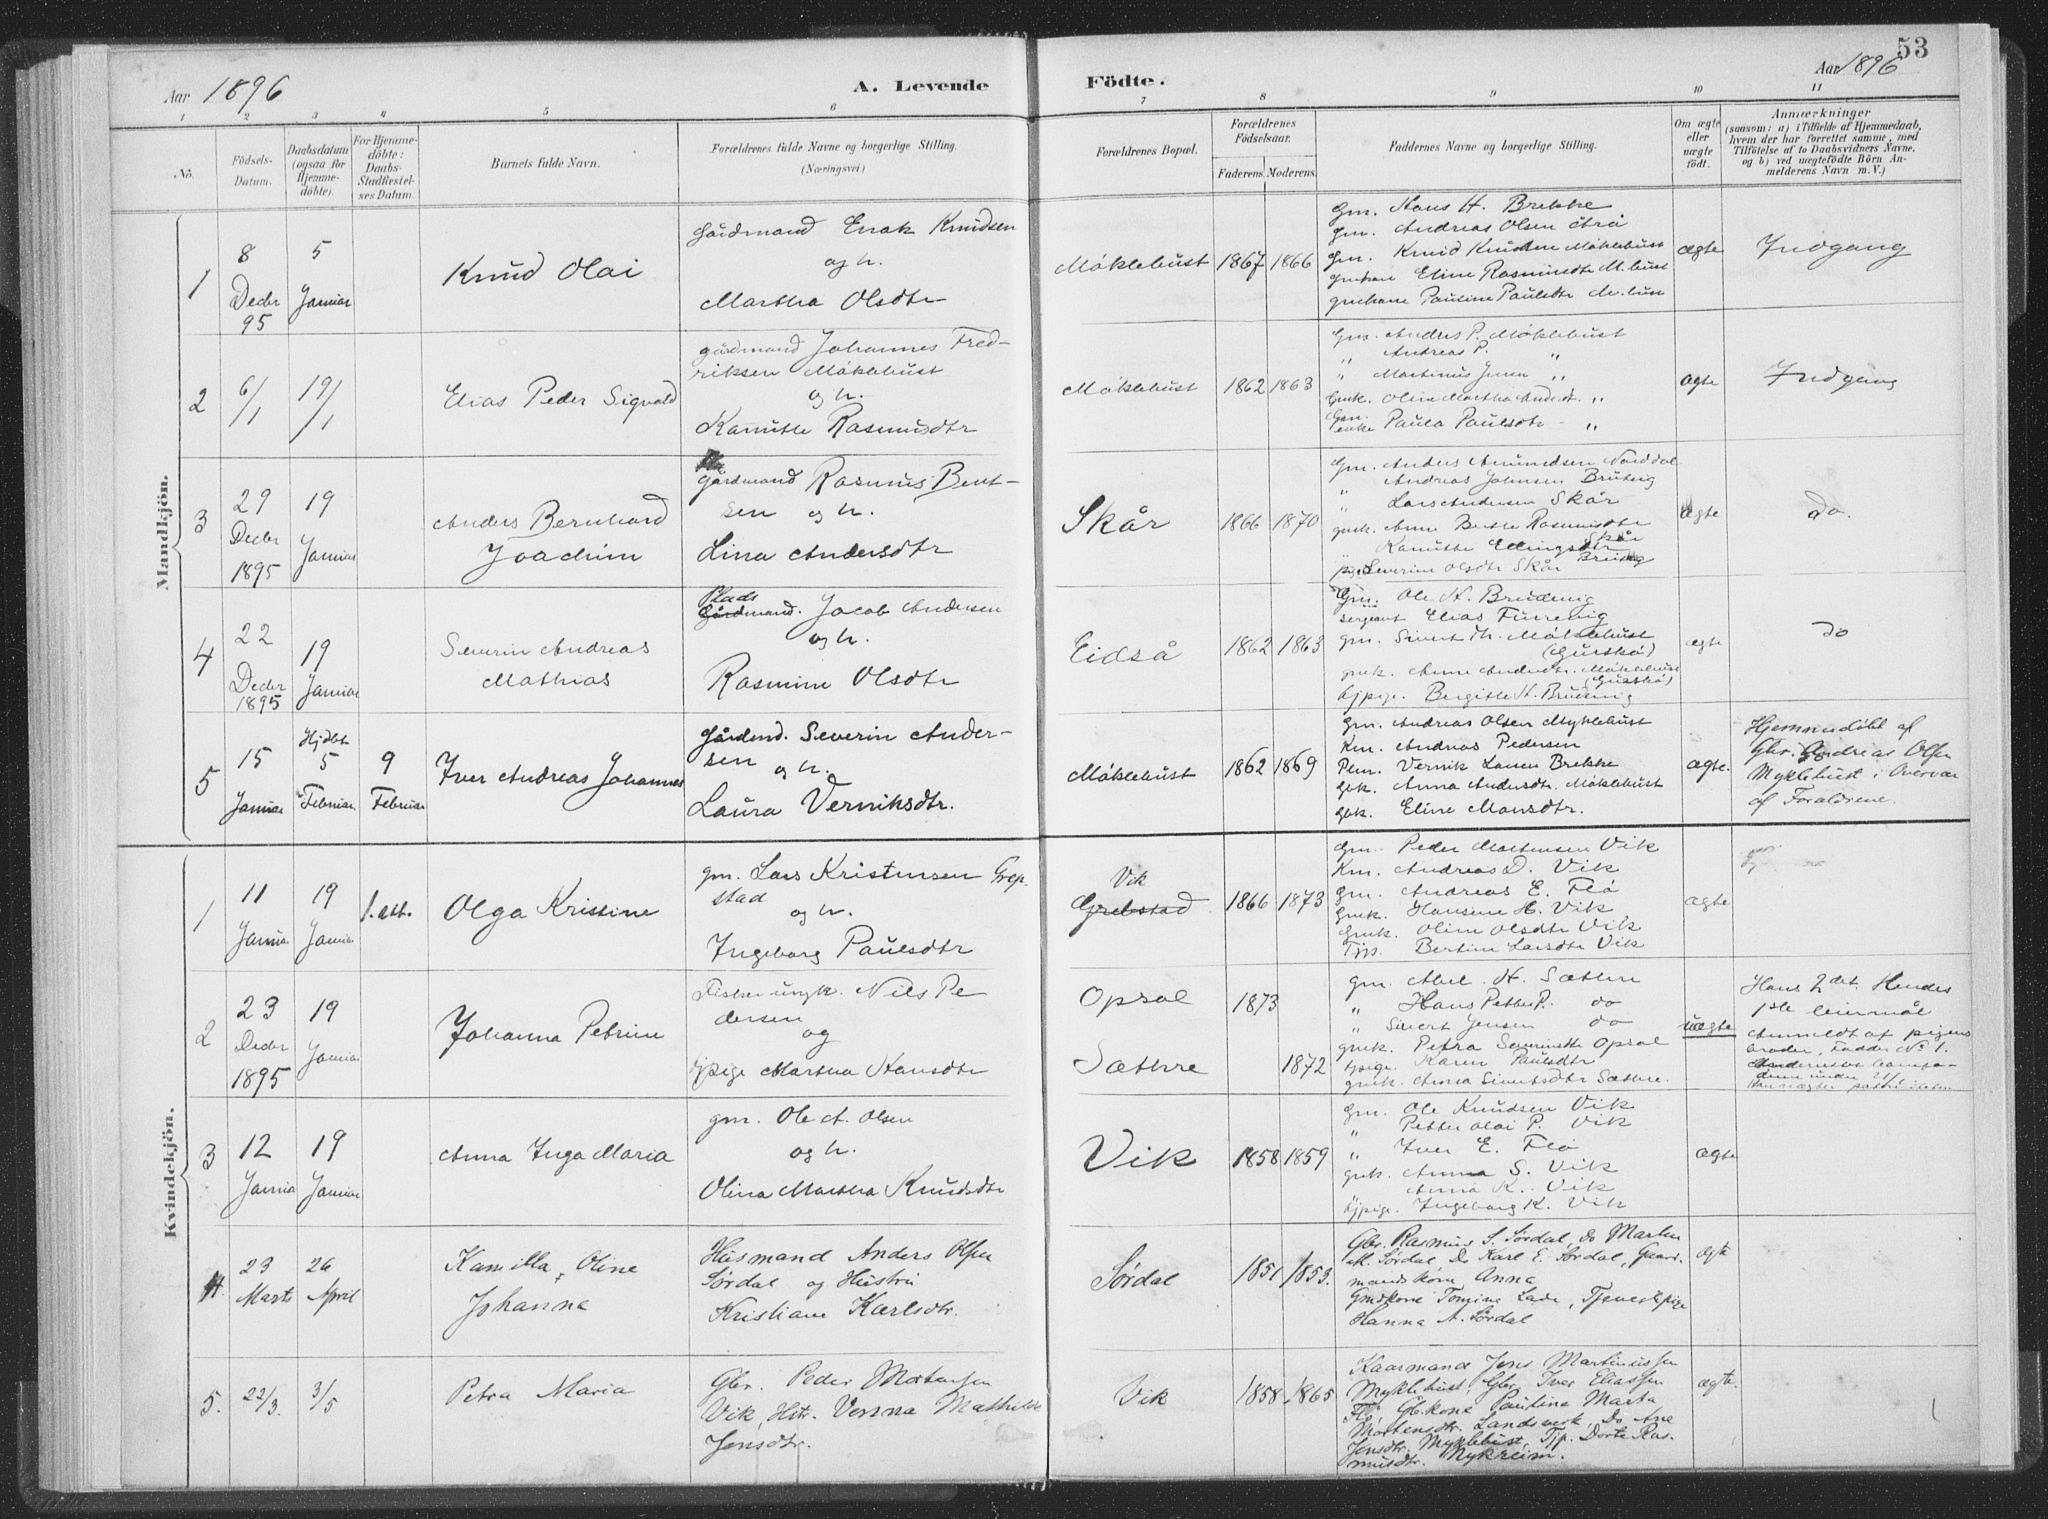 53
Aar 1896
A. Levende
Födte.
Aar 1896
1 2 3 4 5 6 7 8 9 10 11
No.
Födsels-
Datum.
Daabsdatum
(ogsaa for
Hjemme-
döbte).
For Hjemme-
döbte:
Daabs-
Stadfæstel-
ses Datum.
Barnets fulde Navn.
Forældrenes fulde Navne og borgerlige Stilling.
(Næringsvei.)
Forældrenes Bopæl.
Forældrenes
Födselsaar.
Faderens. Moderens.
Faddernes Navne og borgerlige Stilling.
Om ægte
eller
uægte
födt.
Anmærkninger
(saasom: a) i Tilfælde af Hjemmedaab,
hvem der har forrettet samme, med
Tilföielse af to Daabsvidners Navne,
og b) ved uægtefödte Börn An-
melderens Navn m. V.)
Mandkjön.
1
8
Decbr
95
5
Januar
Knud Olai
Gårdmand Enok Knudsen
og h.
Martha Olsdtr
Möklebust
1867 1866
Gm. Hans H. Brekke
Gm. Andreas Olsen
Gm. Knud Knudsen Möklebust
Gmkone Eline Rasmusdtr M.bust
gmkone Pauline Paulsdtr M.bust
ægte
Indgang
2
6/1
19/1
Elias Peder Sigvald
gårdmand Johannes Fred-
riksen Möklebust
og h.
Kanutte Rasmusdtr
Möklebust
1862 1863
Gm. Andres P. Möklebust
" Andreas P. "
" Martinus Jensen "
Gmk. Oline Martha Andersdtr. "
Gm.
enke Paula Paulsdtr - "
ægte
Indgang
3
29
Decbr
1895
19
Januar
Anders Bernhard
Joachim
Gårdmand Rasmus Bent-
sen og h.
Lina Andersdtr
Skår
1866 1870
Gm. Anders Amundsen Norddal
" Andreas Johnsen Brudevig
" Lars Andersen Skår
gmk. Anne Berthe Rasmusdtr
Skår
" Kanutte Ellingsdtr
Brudevig
pige Severine Olsdtr Skår
ægte
do.
4
22
Decbr
1895
19
Januar
Severin Andreas
Mathias
Plads
Gårdmand. Jacob Andersen
og h.
Rasmine Olsdtr
Eidså
1862 1863
Gm. Ole H. Brudevig
sergeant Elias Furrevig
gm. Sivert Th. Möklebust
(Gurskö)
gmk. Anne Andersdtr. Möklebust
(Gurskö)
tjpige. Bergitte H. Brudevig
ægte
do
5
15
Januar
Hjdbt
5
Februar
9
Februar
Iver Andreas Johannes
Gårdmd. Severin Ander-
sen og h.
Laura Verniksdtr.
Möklebust
1862 1869
Gm. Andreas Olsen Myklebust
Km. Andreas Pedersen
Plm. Vernik Larsen Brekke
Gbk. Anna Andersdtr. Möklebust
Gbk. Eline Monsdtr.
ægte.
Hjemmedöbt af
Gbr. Andreas Olsen
Myklebust i Overvær
af Forældrene.
Kvindekjön.
1
11
Januar
19
Januar
1. att.
Olga Kristine
gm. Lars Kristensen Grep-
stad
og h.
Ingeborg Paulsdtr
Vik
Grebstad
1866 1873
Gm. Peder Mortensen Vik
Km. Andreas D. Vik
Gm. Andreas E. Flö
Gmk. Hansine H. Vik
Gmk. Oline Olsdtr Vik
Tjp. Bertine Larsdtr Vik
ægte
2
23
Decbr
1895
19
Januar
Johanna Petrine
Fisker ungk. Nils Pe
dersen
og
tjpige Martha Hansdtr
Opsal
Sæthre
1873
1872
gm. Abel. H. Sæthre
" Hans Petter P. do
" Sivert Jensen do
gmk. Petra Severinsdtr Opsal
tjpige. Karen Paulsdtr
gmk. Anna Sivertsdtr Sæthre.
uægte
Hans 2det. Hendes
1ste leiermål
Anmeldt af pigens
broder, Fadder No 1.
3
12
Januar
19
Januar
Anna Inga Maria
gm. Ole A. Olsen
og h.
Olina Martha Knudsdtr
Vik
1858 1859
Gm. Ole Knudsen Vik
" Petter Olai P. Vik
" Iver E. Flö
gmk. Anna S. Vik
Anna K. Vik
tjpige. Ingeborg K. Vik
ægte
4.
23
Marts
26
April
Kamilla, Oline
Johanna
Husmand Anders Olsen
Sørdal og Hustru
Kristiane Karlsdtr.
Sørdal
1851 1853.
Gbr. Rasmus S. Sørdal, Do Martin
A. Sørdal, Do Karl E. Sørdal, Gaard-
mandskone Anna
Gmdkone Tomine Lade, Tjenestepige
Hanna A. Sørdal
ægte
5.
22/3.
3/5
Petra Maria
Gbr. Peder Mortensen
Vik, Hstr. Verina Mathilde
Jensdtr.
Vik
1858 1865
Kaarmand Jens Martinussen
Myklebust, Gbr. Iver Eliassen
Flö, Gbrkone Paulina Marta
Mortensdtr. Landsverk, Do Ane
Jensdtr. Myklebust, Tjp. Dorte Ras-
musdtr. Mykreim.
ægte.